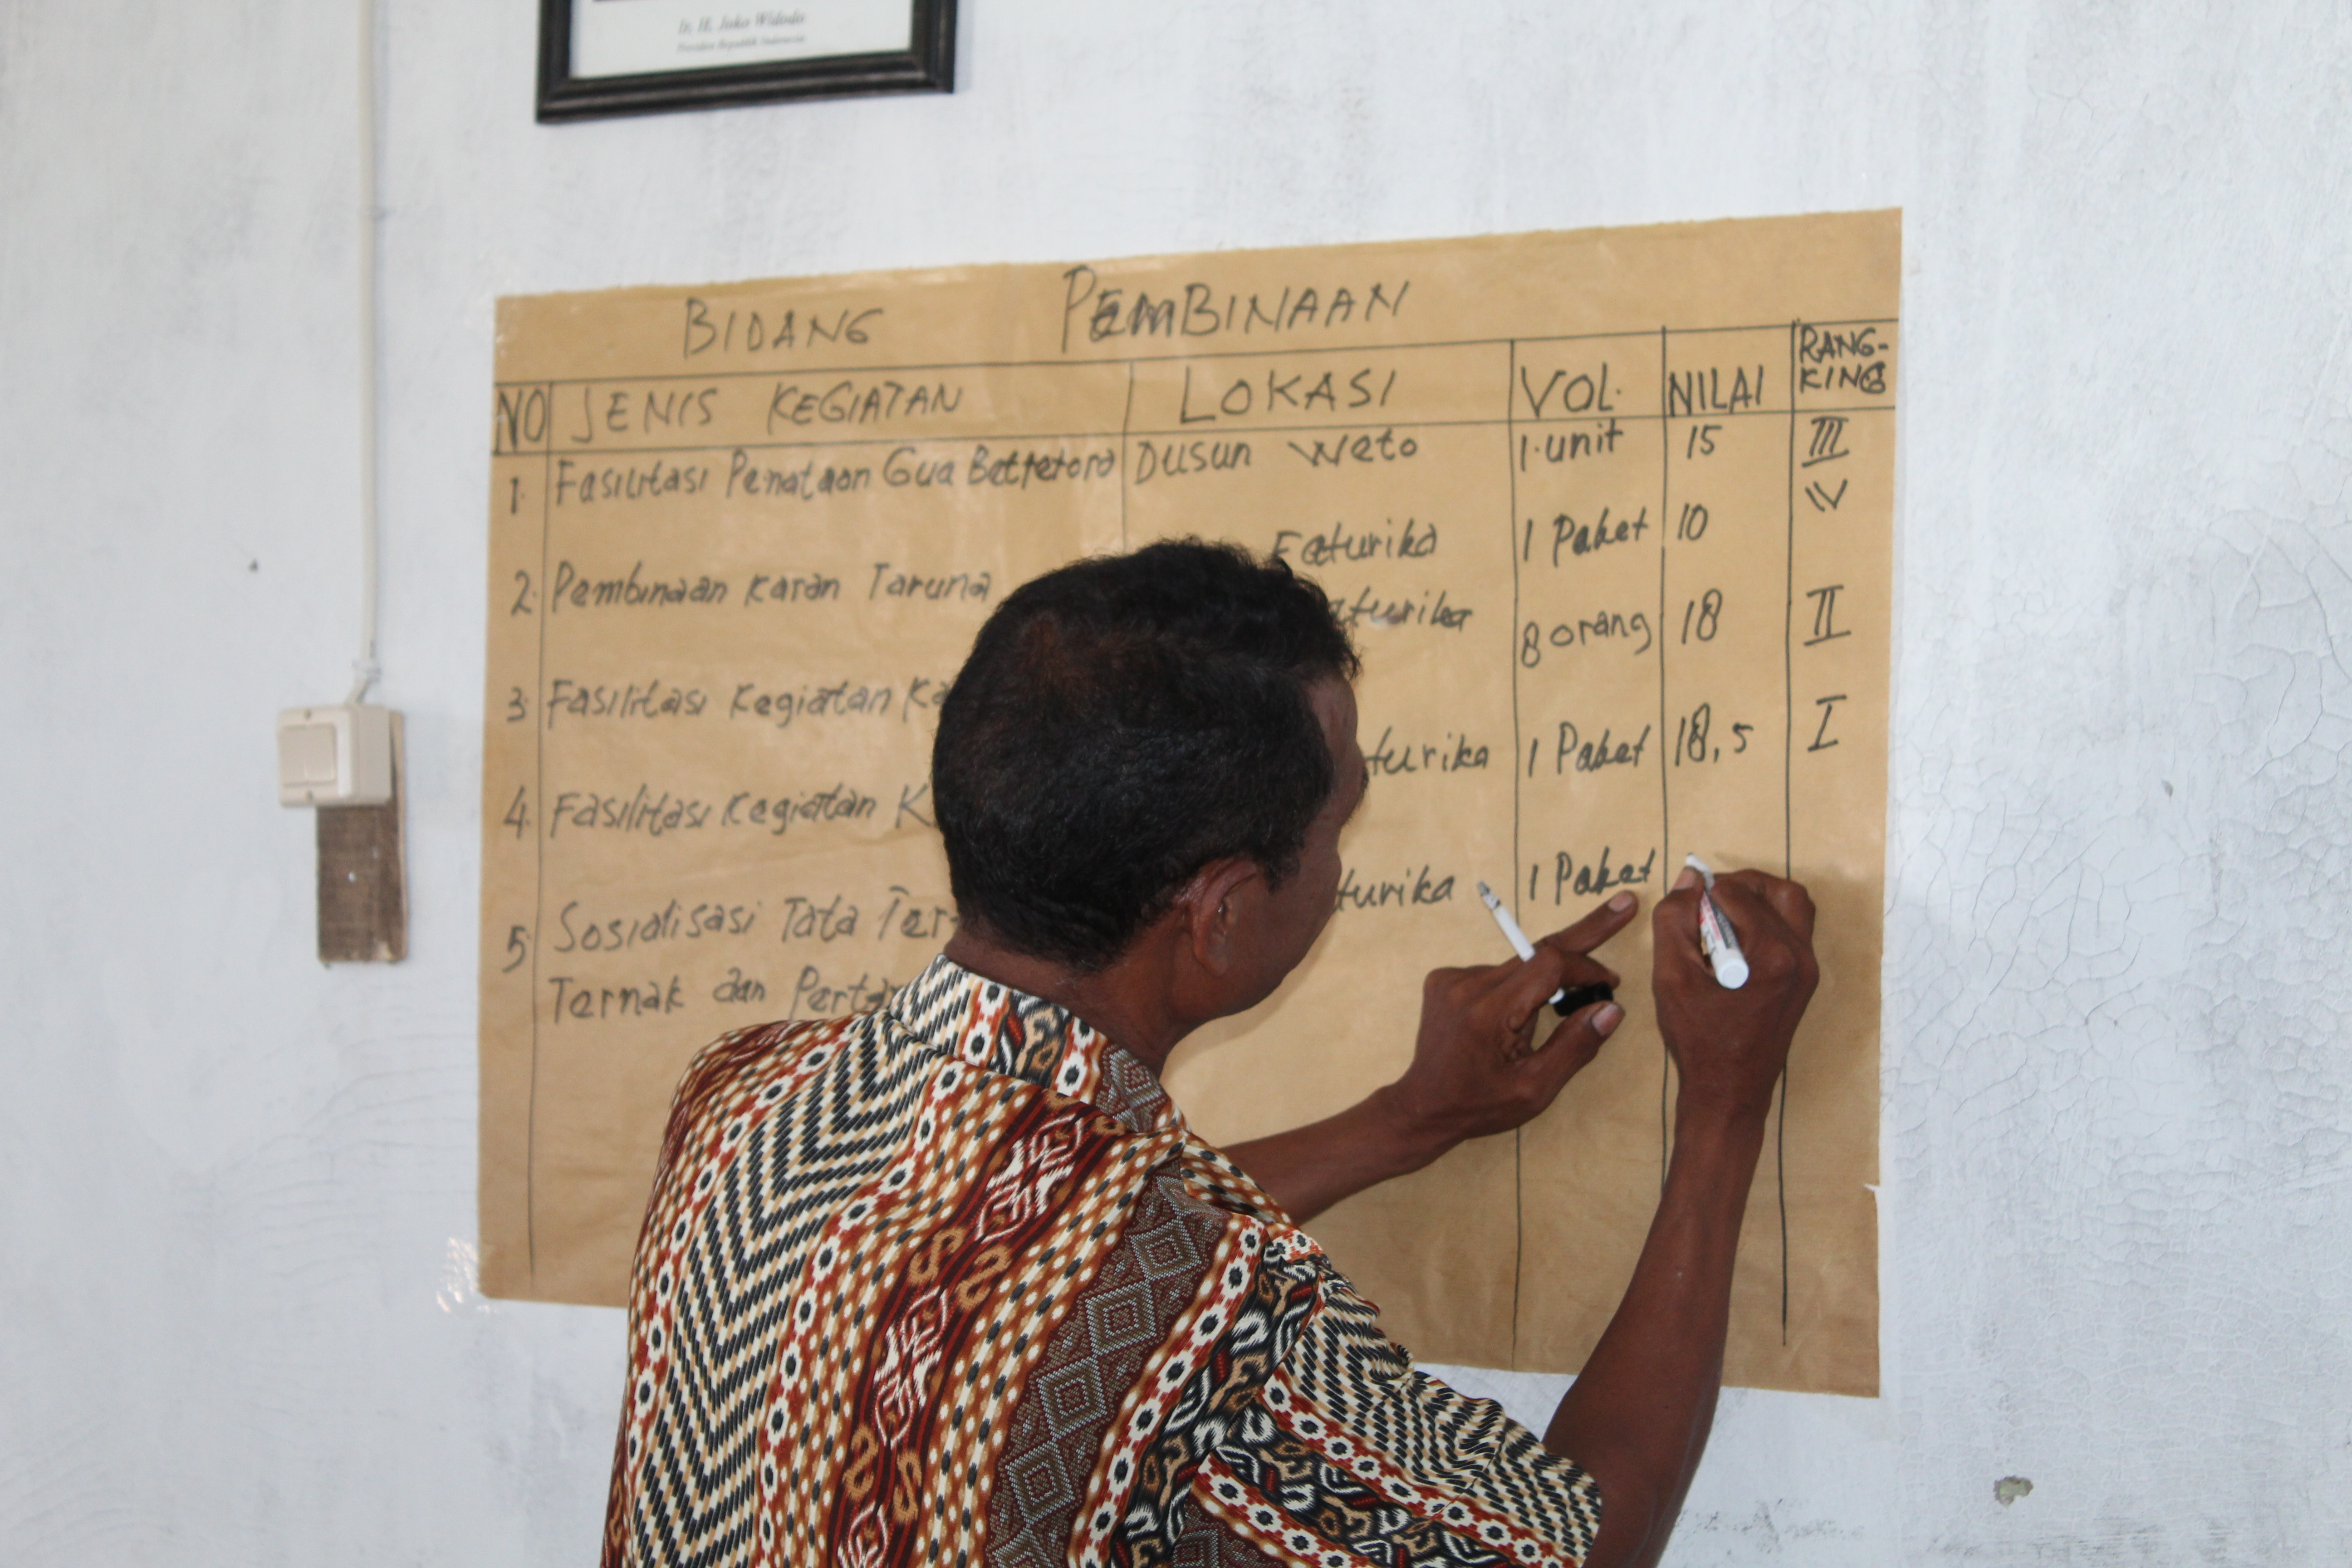 Ir. H. Joko Widodo
Presiden Republik Indonesia
BIDANG PEMBINAAN
NO JENIS KEGIATAN LOKASI VOL. NILAI RANG-
KING
1. Fasilitasi Penataan Gua Dusun Weto 1 unit 15 III
Faturika 1 Paket 10 IV
2. Pembinaan Karan Taruna
8 orang 18 II
3. Fasilitasi Kegiatan
1 Paket 18,5 I
4. Fasilitasi Kegiatan
1 Paket
5. Sosialisasi Tata
Ternak dan